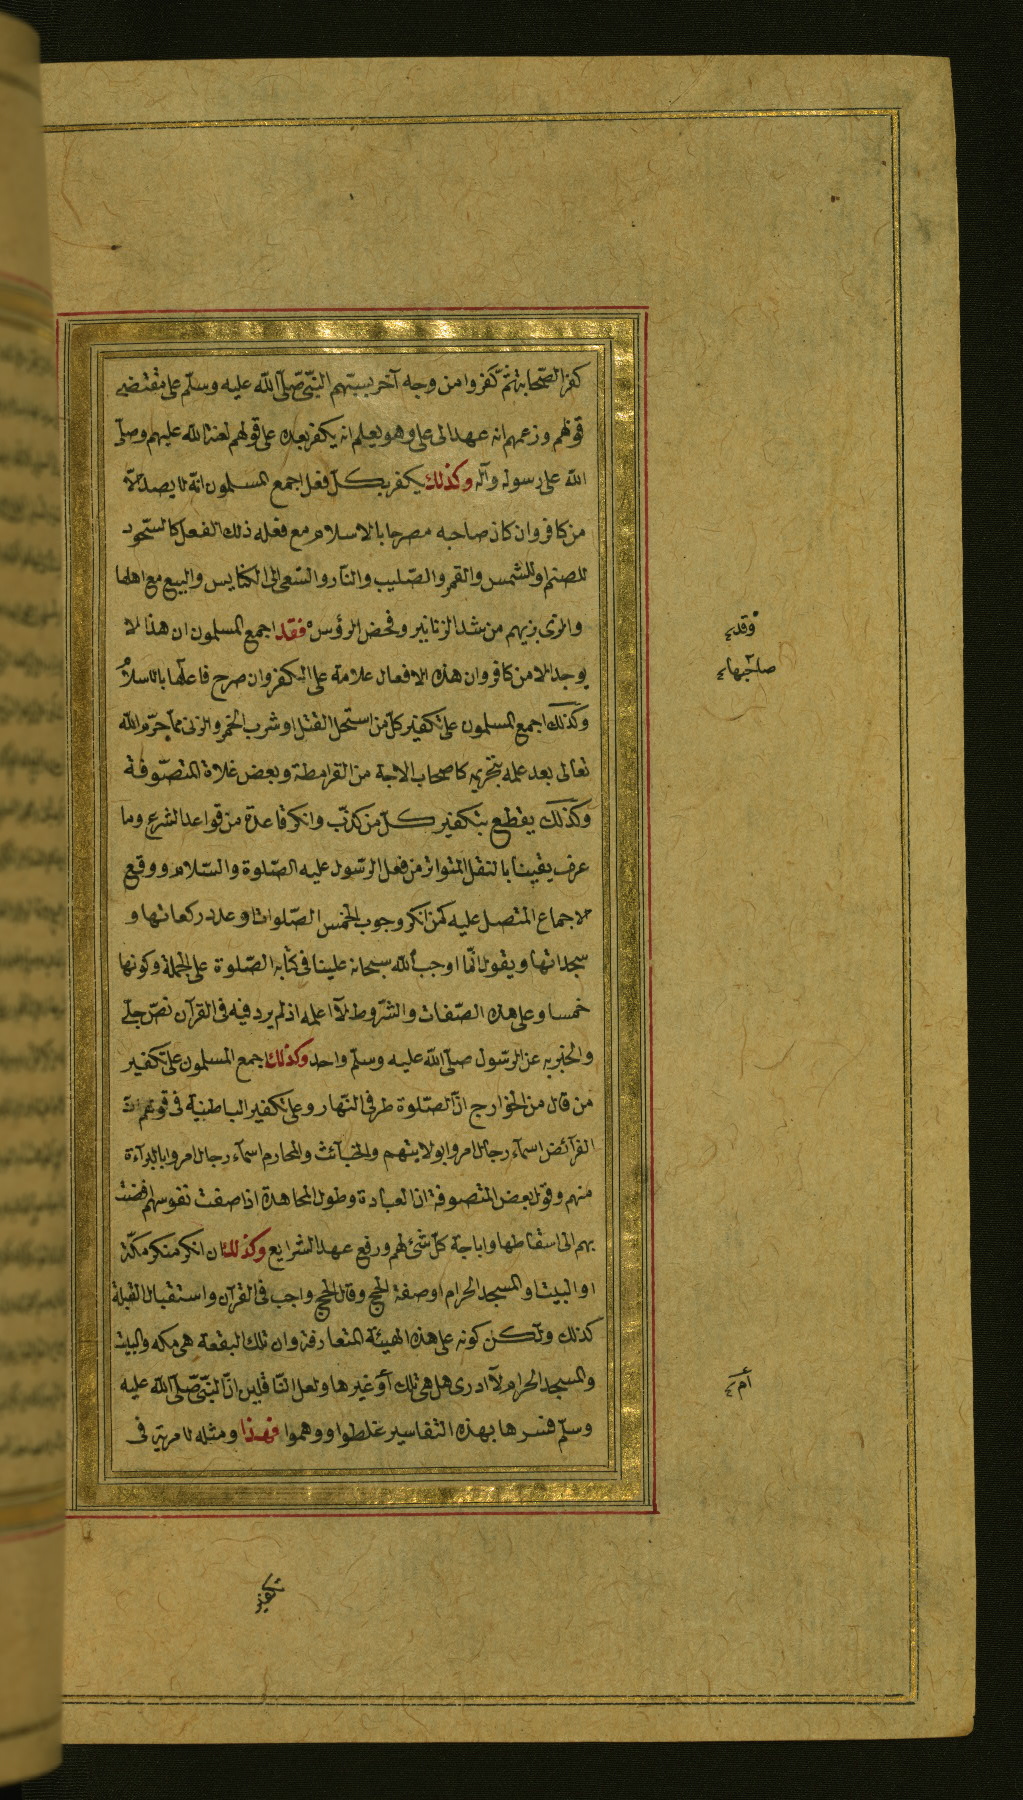 كفر الصّحابة ثمّ كفروا من وجه آخر بسبّهم النّبىّ صلّى اللّه عليه وسلّم على مقتضى
قولهم وزعمهم انه عهد الى على وهو يعلم انه يكفر بعده على قولهم لعنة اللّه عليهم وصلّى
اللّه على رسوله وآله وكذلك يكفر بكلّ فعل اجمع المسلمون انّه لا يصدر الّا
من كافر وان كان صاحبه مصرحا بالاسلام مع فعله ذلك الفعل كالسّجود
للصنم او للشمس والقمر والصّليب والنّار والسّعى الى الكنايس والبيع مع اهلها
والزى بزيهم من شد الزنانير وفحص الرؤس فقد اجمع المسلمون ان هذا لا
يوجد الا من كافر وان هذه الافعال علامة على الكفر وان صرح فاعلها بالاسلام
وكذلك اجمع المسلمون على تكفير كلّ من استحل القتل او شرب الخمر والزنى مما حرّم اللّه
تعالى بعد علمه بتحريمه كاصحاب الاباحة من القرامطة وبعض غلاة المتصوّفة
وكذلك يقطع بتكفير كلّ من كذّب وانكر قاعدة من قواعد الشرع وما
عرف يقينا بالنقل المتواتر من فعل الرّسول عليه الصّلوة والسّلام ووقع
الاجماع المتصل عليه كمن انكر وجوب الخمس الصّلوات او عدد ركعاتها و
سجداتها ويقول انّما اوجب اللّه سبحانه علينا فى كتابه الصّلوة على الجملة وكونها
خمسا وعلى هذه الصّفات والشّروط لآ اعلمه اذ لم يرد فيه فى القرآن نصّ جلى
والخبر به عن الرّسول صلّى اللّه عليه وسلّم واحد وكذلك اجمع المسلمون على تكفير
من قال من الخوارج انّ الصّلوة طرفى النّهار وعلى تكفير الباطنية فى قولهم انّ
الفرآئض اسمآء رجال امروا بولايتهم والخبآئث والمحارم اسمآء رجال امروا بالبرآءة
منهم وقول بعض المتصوفة ان العبادة وطول المجاهدة اذا صفت نفوسهم افضت
بهم الى اسقاطها واباحة كلّ شئ لهم ورفع عهد الشرايع وكذلك ان انكر منكر مكّة
او البيت او المسجد الحرام او صفة الحج وقال الحج واجب فى القرآن واستقبال القبلة
كذلك ولكن كونه على هذه الهيئة المتعارفة وان تلك البقعة هى مكه والبيت
والمسجد الحرام لآ ادرى هل هى تلك أو غيرها ولعل النّاقلين انّ النّبىّ صلّى اللّه عليه
وسلّم فسرها بهذه التفاسير غلطوا ووهموا فهذا ومثله لا مرية فى
وقد
صاحبها
أم
تكفير